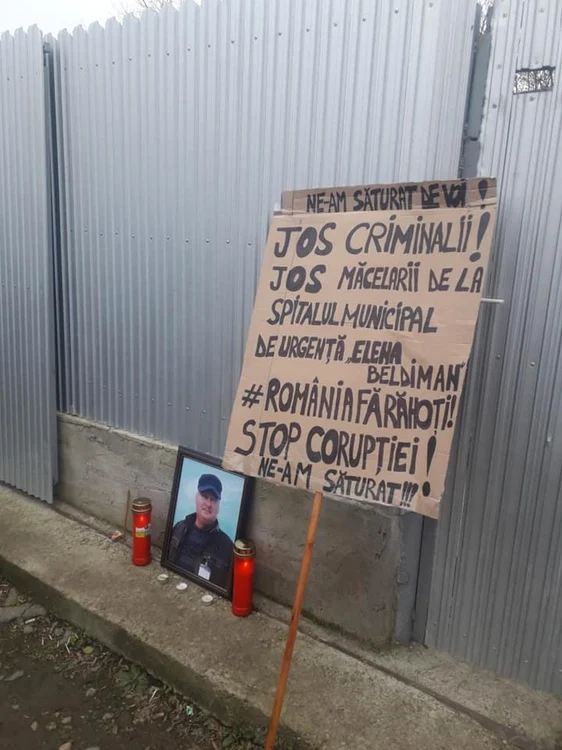 NE-AM SĂTURAT DE VOI !
JOS CRIMINALII!
JOS MĂCELARII DE LA
SPITALUL MUNICIPAL
DE URGENȚĂ „ELENA
BELDIMAN"
#ROMÂNIAFĂRĂHOȚI!
STOP CORUPȚIEI!
NE-AM SĂTURAT!!!